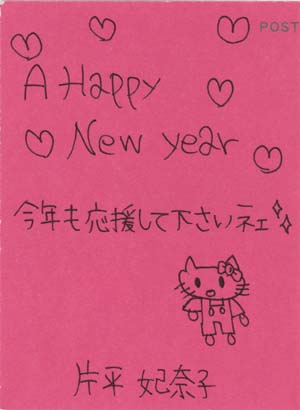 POST
A Happy
New year
今年も応援して下さいネェ
片平 妃奈子